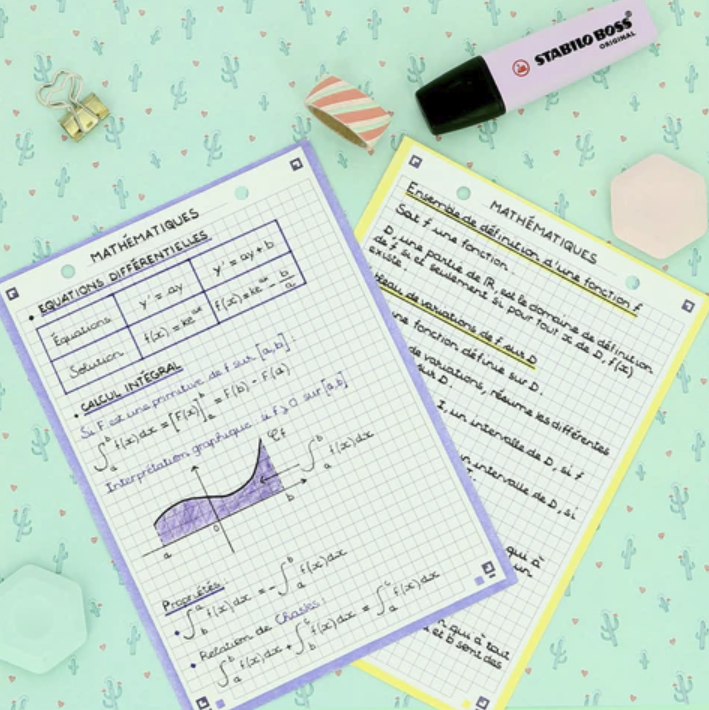 STABILO BOSS
ORIGINAL
MATHÉMATIQUES
• EQUATIONS DIFFÉRENTIELLES
Équations y' = ay y' = ay + b
Solution f(x) = ke^ax f(x) = ke^ax - b/a
• CALCUL INTÉGRAL
Si F est une primitive de f sur [a,b] :
∫_a^b f(x)dx = [F(x)]_a^b = F(b) - F(a)
Interprétation graphique : si f ⩾ 0 sur [a,b]
𝒞f
∫_a^b f(x)dx
a 0 b
Propriétés :
• ∫_b^a f(x)dx = - ∫_a^b f(x)dx
• Relation de Chasles :
∫_a^b f(x)dx + ∫_b^c f(x)dx = ∫_a^c f(x)dx
MATHÉMATIQUES
Ensemble de définition d'une fonction f
Soit f une fonction.
D, une partie de ℝ, est le domaine de définition
de f si et seulement si pour tout x de D, f(x)
existe.
de variations de f sur D
une fonction définie sur D.
de variations, résume les différentes
sur D.
I, un intervalle de D, si f
un intervalle de D, si
qui à
un
qui à tout
a et b sont des